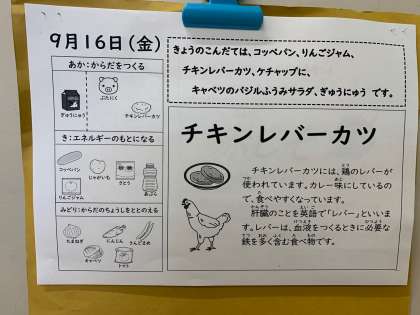 9月16日(金)
あか:からだをつくる
ぎゅうにゅう
ぶたにく
チキンレバーカツ
き:エネルギーのもとになる
コッペパン
じゃがいも
さとう
あぶら
りんごジャム
みどり:からだのちょうしをととのえる
たまねぎ
にんじん
さんどまめ
キャベツ
トマト
きょうのこんだては、コッペパン、りんごジャム、
チキンレバーカツ、ケチャップに、
キャベツのバジルふうみサラダ、ぎゅうにゅう です。
チキンレバーカツ
チキンレバーカツには、鶏のレバーが
使われています。カレー味にしているの
で、食べやすくなっています。
肝臓のことを英語で「レバー」といいま
す。レバーは、血液をつくるときに必要な
鉄を多く含む食べ物です。